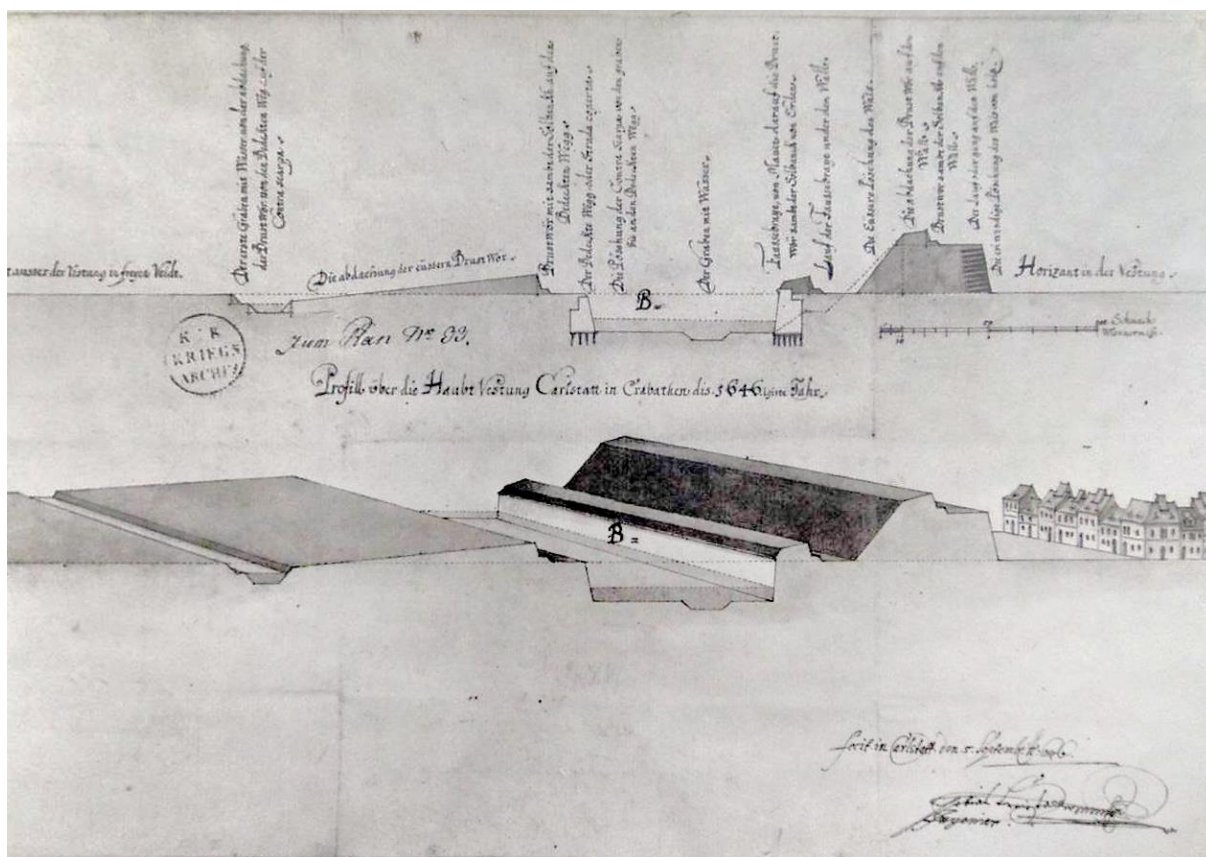 Der erste Graben mit Wasser von der abdachung
der Brust Wör. von den Bedekten Weg auf der
Contra scarpa.
Brustwör mit sambt der Selben Ab auf den
Bedeckten Wegg.
Der Bedeckte Wegg oder Strada coperta.
Die Löschung der Contra Scarpa von den graben
bis an den Bedeckten Wegg.
Der Graben mit Wasser.
Faussebraye, von Mauer darauf die Brust-
Wör sambt der Selben von Erden.
Lauf der Faussebraye under den Wall.
Die Eüssere Löschung des Wals.
Die abdachung der Brust Wör auf den
Wall.
Brustwör sambt der Selben Ab auf den
Wall.
Der Lauf oder gang auf den Wall.
Die inwendige Löschung des Wals
ausser der Vestung in freyen Velde.
Die abdachung der eüssern Brust Wör.
Horizant in der Vestung.
B=
K K
KRIEGS
ARCHIV
Zum Plan No 93.
Profill über die Haubt Vestung Carlstatt in Crabathen dis. 1646. igisten Jahr.
B=
fecit in Carlstatt den 5. Septembr. 1646.